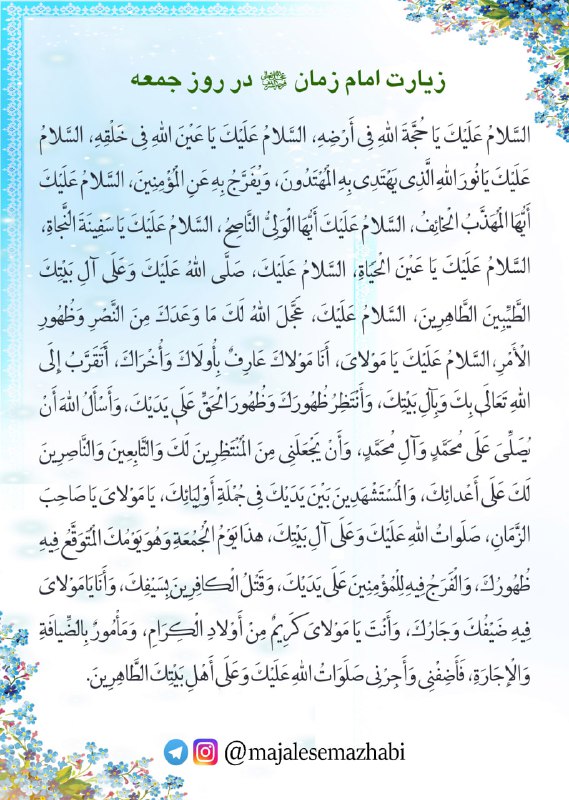 زیارت امام زمان ﷺ در روز جمعه
السَّلامُ عَلَيْكَ يَا حُجَّةَ اللهِ فِى أَرْضِهِ، السَّلامُ عَلَيْكَ يَا عَيْنَ اللهِ فِى خَلْقِهِ، السَّلامُ
عَلَيْكَ يَا نُورَ اللهِ الَّذِى يَهْتَدِى بِهِ الْمُهْتَدُونَ، وَيُفَرَّجُ بِهِ عَنِ الْمُؤْمِنِينَ، السَّلامُ عَلَيْكَ
أَيُّهَا الْمُهَذَّبُ الْخَائِفُ، السَّلامُ عَلَيْكَ أَيُّهَا الْوَلِىُّ النَّاصِحُ، السَّلامُ عَلَيْكَ يَا سَفِينَةَ النَّجَاةِ،
السَّلامُ عَلَيْكَ يَا عَيْنَ الْحَيَاةِ، السَّلامُ عَلَيْكَ، صَلَّى اللهُ عَلَيْكَ وَعَلَى آلِ بَيْتِكَ
الطَّيِّبِينَ الطَّاهِرِينَ، السَّلامُ عَلَيْكَ، عَجَّلَ اللهُ لَكَ مَا وَعَدَكَ مِنَ النَّصْرِ وَظُهُورِ
الْأَمْرِ، السَّلامُ عَلَيْكَ يَا مَوْلاىَ، أَنَا مَوْلاكَ عَارِفٌ بِأُولَاكَ وَأُخْرَاكَ، أَتَقَرَّبُ إِلَى
اللهِ تَعَالَى بِكَ وَبِآلِ بَيْتِكَ، وَأَنْتَظِرُ ظُهُورَكَ وَظُهُورَ الْحَقِّ عَلَى يَدَيْكَ، وَأَسْأَلُ اللهَ أَنْ
يُصَلِّىَ عَلَى مُحَمَّدٍ وَآلِ مُحَمَّدٍ، وَأَنْ يَجْعَلَنِى مِنَ الْمُنْتَظِرِينَ لَكَ وَالتَّابِعِينَ وَالنَّاصِرِينَ
لَكَ عَلَى أَعْدائِكَ، وَالْمُسْتَشْهَدِينَ بَيْنَ يَدَيْكَ فِى جُمْلَةِ أَوْلِيَائِكَ، يَا مَوْلاىَ يَا صَاحِبَ
الزَّمَانِ، صَلَواتُ اللهِ عَلَيْكَ وَعَلَى آلِ بَيْتِكَ، هذَا يَوْمُ الْجُمُعَةِ وَهُوَ يَوْمُكَ الْمُتَوَقَّعُ فِيهِ
ظُهُورُكَ، وَالْفَرَجُ فِيهِ لِلْمُؤْمِنِينَ عَلَى يَدَيْكَ، وَقَتْلُ الْكافِرِينَ بِسَيْفِكَ، وَأَنَا يَا مَوْلاىَ
فِيهِ ضَيْفُكَ وَجَارُكَ، وَأَنْتَ يَا مَوْلاىَ كَرِيمٌ مِنْ أَوْلادِ الْكِرَامِ، وَمَأْمُورٌ بِالضِّيافَةِ
وَالْإِجَارَةِ، فَأَضِفْنِى وَأَجِرْنِى صَلَوَاتُ اللهِ عَلَيْكَ وَعَلَى أَهْلِ بَيْتِكَ الطَّاهِرِينَ.
@majalesemazhabi